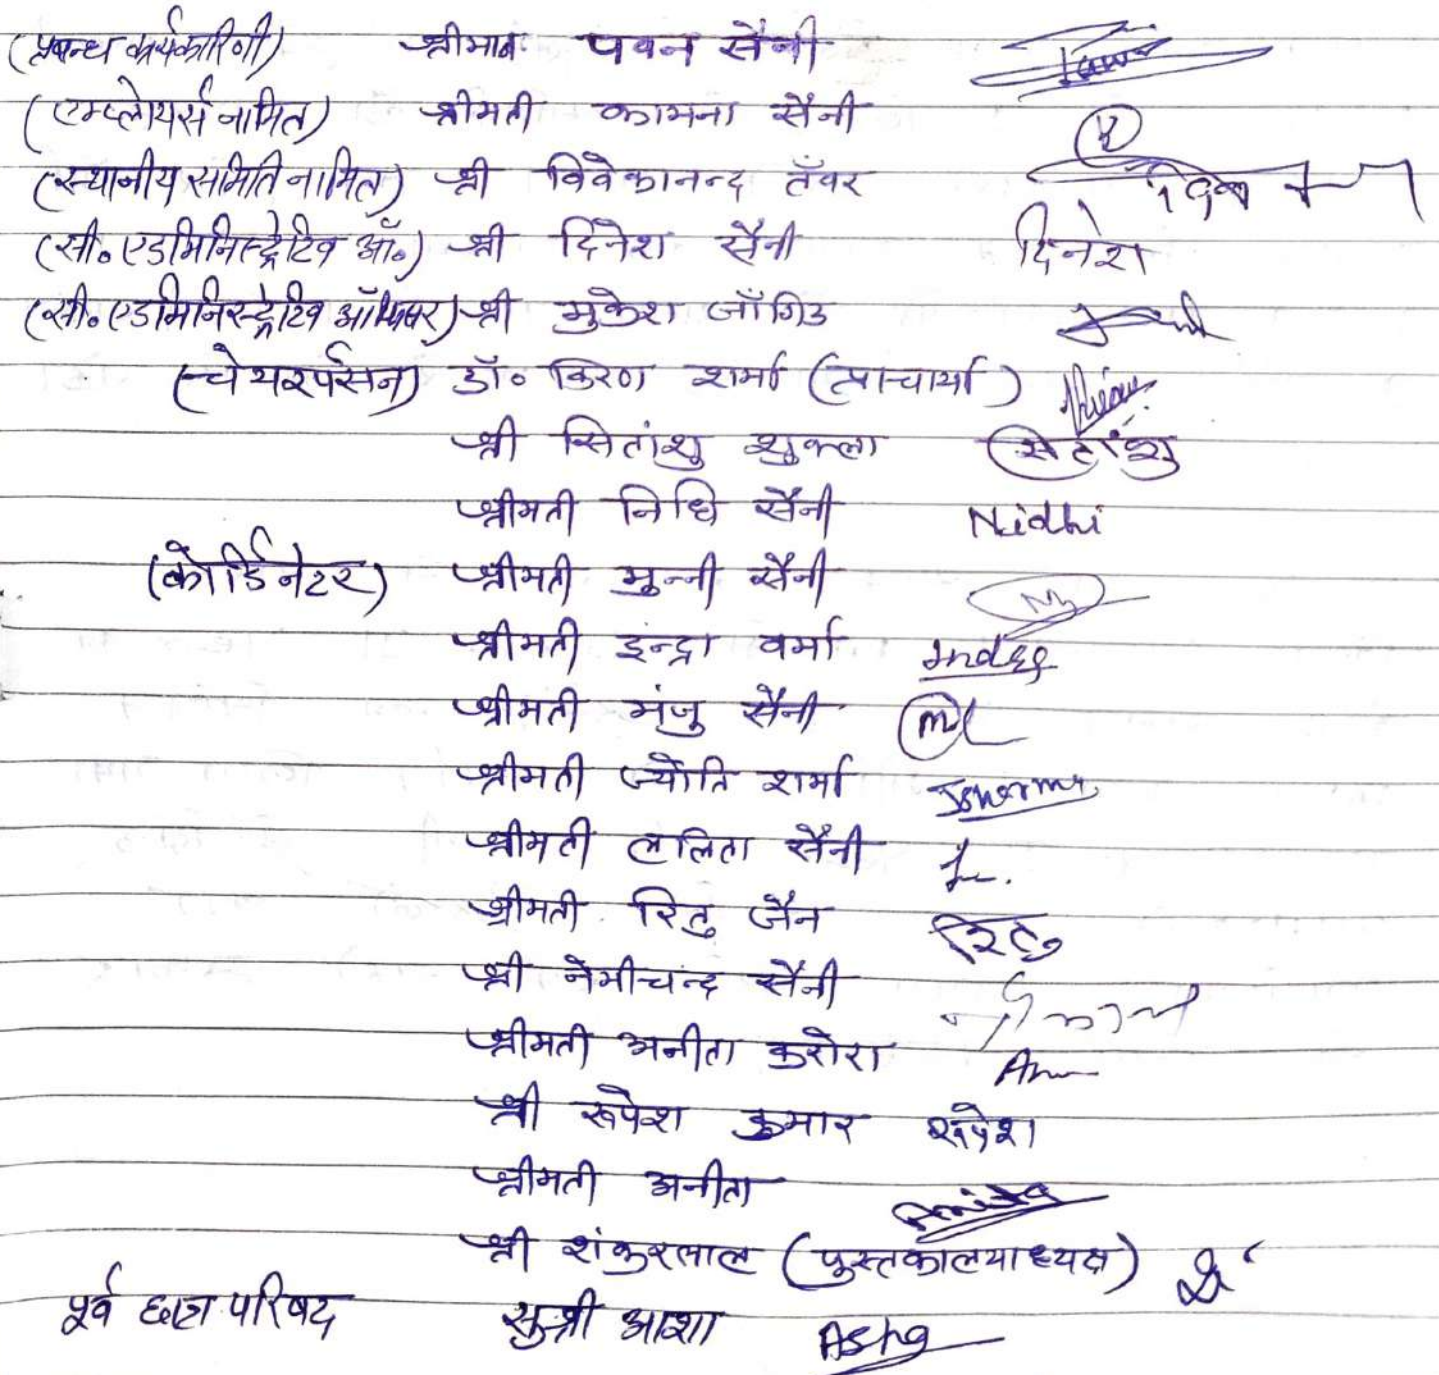 (प्रबन्ध कार्यकारिणी) श्रीमान पवन सैनी
(एम्प्लोयर्स नामित) श्रीमती कामना सैनी
(स्थानीय समिति नामित) श्री विवेकानन्द तँवर
(सी॰ एडमिनिस्ट्रेटिव ऑ॰) श्री दिनेश सैनी दिनेश
(सी॰ एडमिनिस्ट्रेटिव ऑफिसर) श्री मुकेश जाँगिड
(चेयरपर्सन) डॉ॰ किरण शर्मा (प्राचार्या)
श्री सितांशु शुक्ला सितांशु
श्रीमती निधि सैनी Nidhi
(कोर्डिनेटर) श्रीमती मुन्नी सैनी
श्रीमती इन्द्रा वर्मा
श्रीमती मंजु सैनी
श्रीमती ज्योति शर्मा JSharma
श्रीमती ललिता सैनी
श्रीमती रितु जैन रितु
श्री नेमीचन्द सैनी
श्रीमती अनीता करोरा
श्री रूपेश कुमार रूपेश
श्रीमती अनीता Anita
श्री शंकुरलाल (पुस्तकालयाध्यक्ष)
पूर्व छात्र परिषद सुश्री आशा Asha